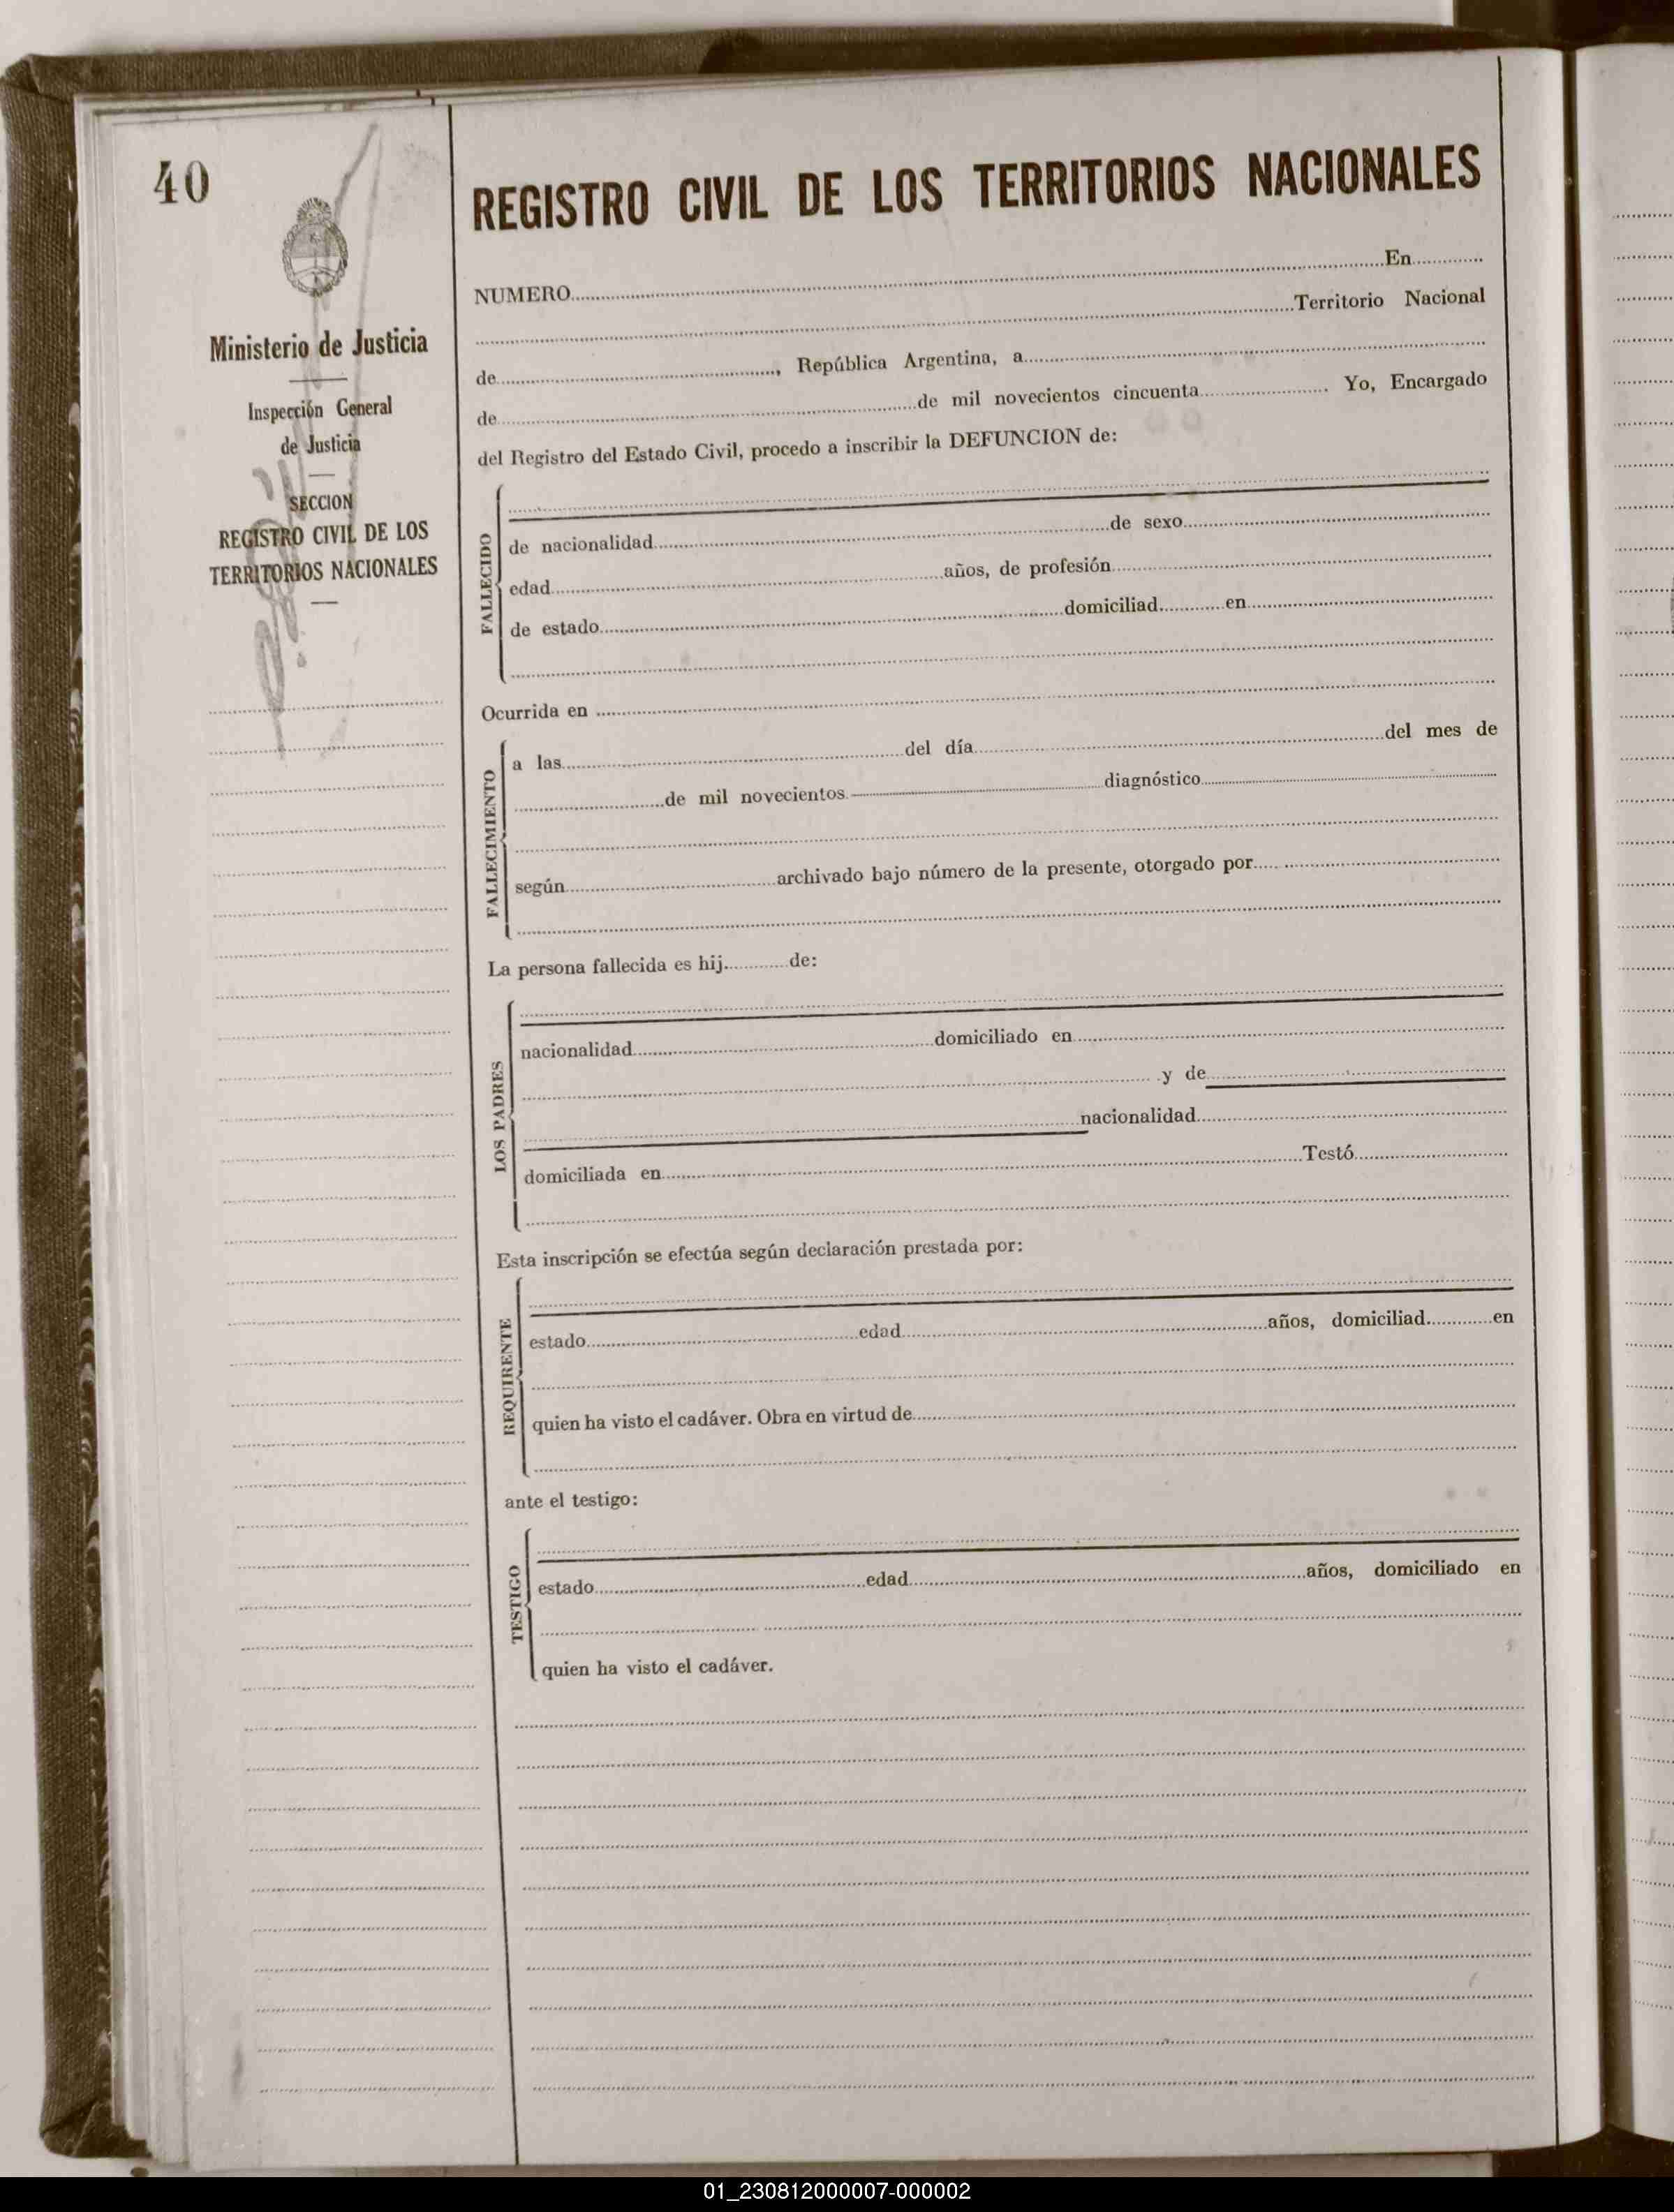 40
Ministerio de Justicia
Inspección General
de Justicia
SECCION
REGISTRO CIVIL DE LOS
TERRITORIOS NACIONALES
REGISTRO CIVIL DE LOS TERRITORIOS NACIONALES
NUMERO En
Territorio Nacional
de , República Argentina, a
de de mil novecientos cincuenta . Yo, Encargado
del Registro del Estado Civil, procedo a inscribir la DEFUNCION de:
FALLECIDO
de nacionalidad de sexo
edad años, de profesión
de estado domiciliad en
Ocurrida en
FALLECIMIENTO
a las del día del mes de
de mil novecientos diagnóstico
según archivado bajo número de la presente, otorgado por
La persona fallecida es hij de:
LOS PADRES
nacionalidad domiciliado en
y de
nacionalidad
domiciliada en Testó
Esta inscripción se efectúa según declaración prestada por:
REQUIRENTE
estado edad años, domiciliad en
quien ha visto el cadáver. Obra en virtud de
ante el testigo:
TESTIGO
estado edad años, domiciliado en
quien ha visto el cadáver.
01_230812000007-000002